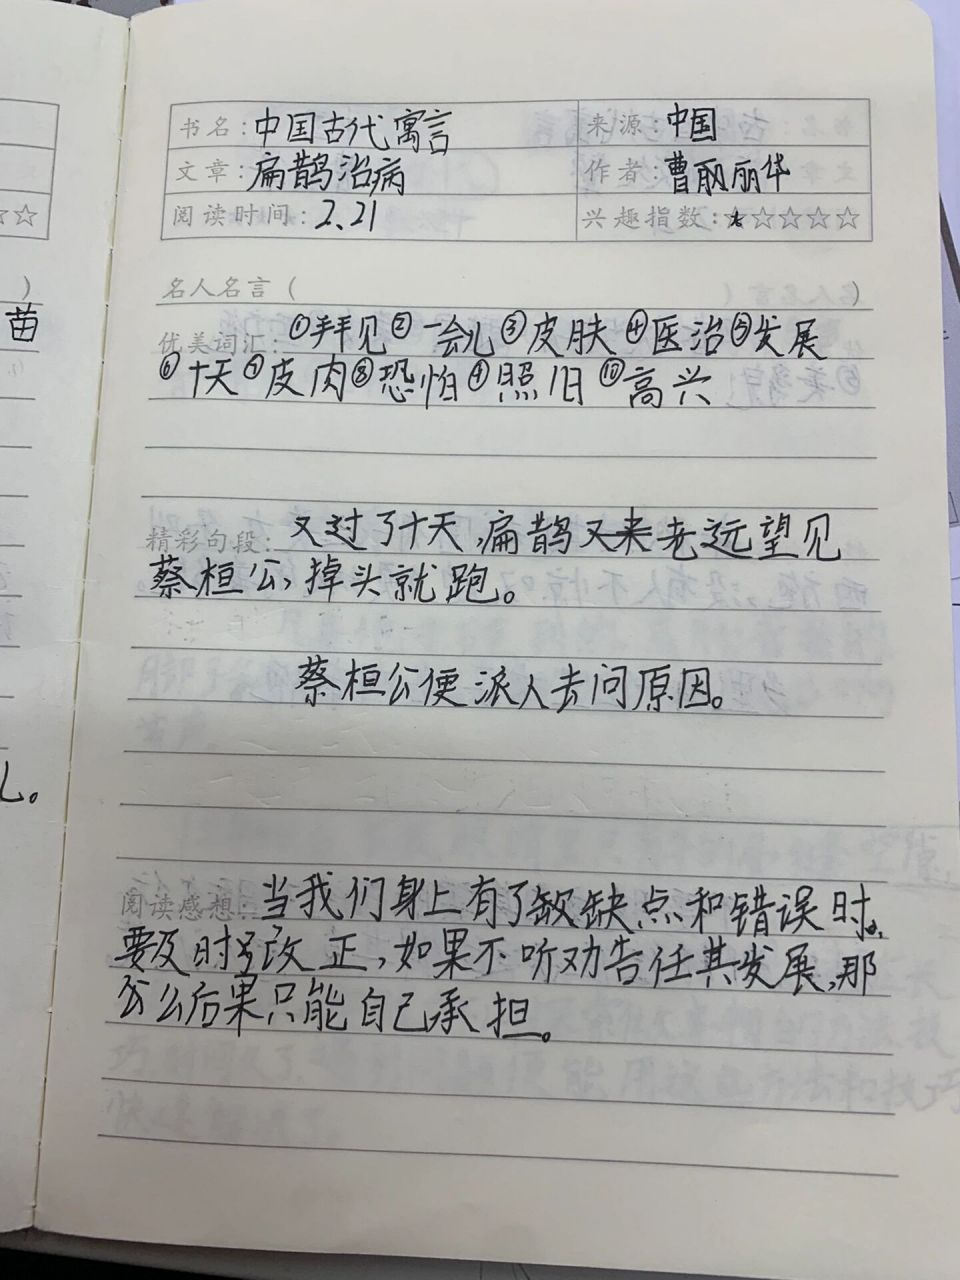 书名：中国古代寓言 来源：中国
文章：扁鹊治病 作者：曹丽丽华
阅读时间：2、21 兴趣指数：★☆☆☆☆☆
名人名言（ ）
优美词汇：①拜见②一会儿③皮肤④医治⑤发展
⑥十天⑦皮肉⑧恐怕⑨照旧⑩高兴
精彩句段：又过了十天，扁鹊又来老远望见
蔡桓公，掉头就跑。
蔡桓公便派人去问原因。
阅读感想：当我们身上有了缺缺点和错误时，
要及时改正，如果不听劝告任其发展，那
么后果只能自己承担。
☆☆
）
苗
。